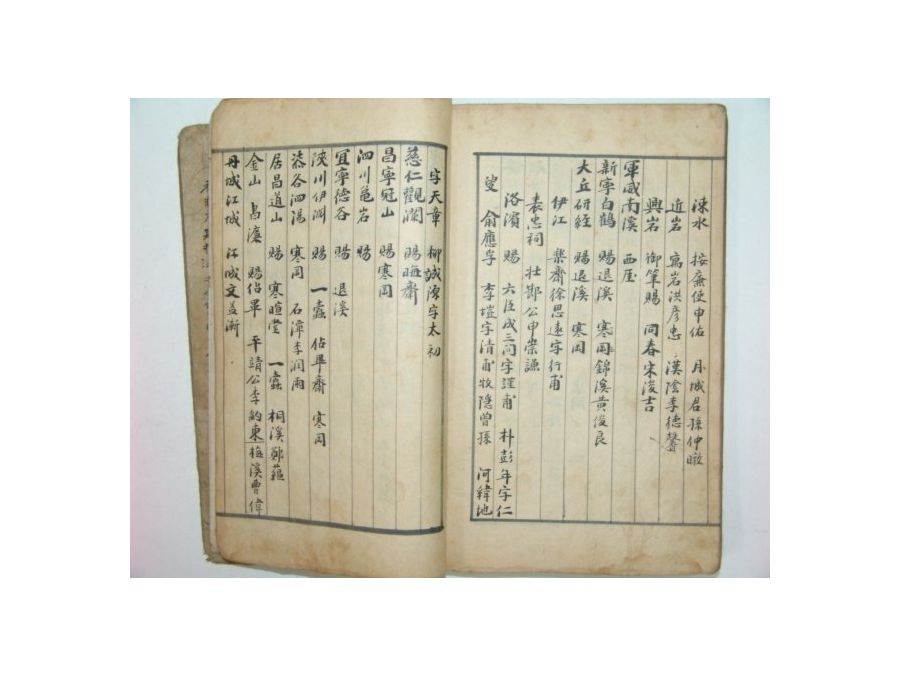 涑水 按廉使申祐 月城君孫仲暾
近岩 寓岩洪彦忠 漢陰李德馨
興岩 御筆賜 同春宋浚吉
軍威南溪 西厓
新寧白鶴 賜退溪 寒岡 錦溪黃俊良
大丘研經 賜退溪 寒岡
伊江 樂齋徐思遠字行甫
表忠祠 壯節公申崇謙
洛濱 賜 六臣成三問字謹甫 朴彭年字仁
叟 俞應孚 李塏字淸甫牧隱曾孫 河緯地
字天章 柳誠源字太初
慈仁觀瀾 賜晦齋
昌寧冠山 賜寒岡
泗川龜岩 賜
宜寧德谷 賜 退溪
浹川伊淵 賜 一蠹 佔畢齋 寒岡
柒谷泗陽 寒岡 石潭李潤雨
居昌道山 賜 寒暄堂 一蠹 桐溪鄭蘊
金山 景濂 賜佔畢 平靖公李約東梅溪曺偉
丹城江城 江城文益漸